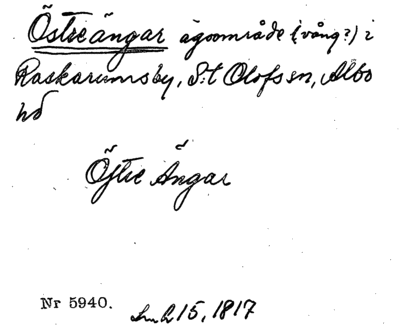 Östreängar ägoområde (vång?) i
Raskarumsby, S:t Olofs sn, Albo
hd
Östre Ängar
Nr 5940. Lmh 15, 1817